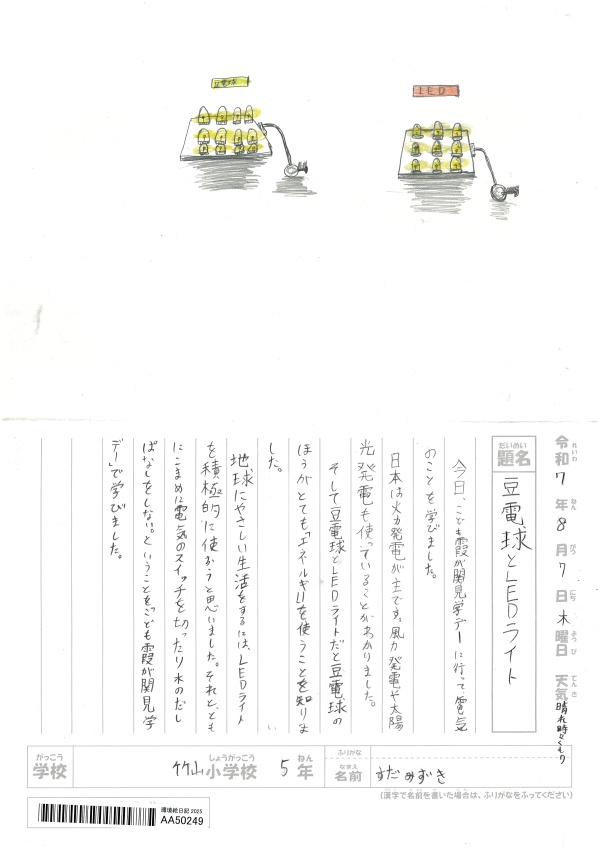 豆電球
LED
令和7年8月7日木曜日 天気 晴れ時々くもり
れいわ ねん がつ にち ようび てんき
だいめい
題名
豆電球とLEDライト
今日、こども霞が関見学デーに行って、電気
のことを学びました。
日本は火力発電が主です。風力発電や太陽
光発電も使っていることがわかりました。
そして豆電球とLEDライトだと豆電球の
ほうがとても「エネルギー」を使うことを知りま
した。
地球にやさしい生活をするには、LEDライト
を積極的に使おうと思いました。それと、とも
にこまめに電気のスイッチを切ったり水のだし
ぱなしをしない。ということを「こども霞が関見学
デー」で学びました。
がっこう
学校
竹山
しょうがっこう
小学校
5
ねん
年
ふりがな
なまえ
名前
すだ みずき
(漢字で名前を書いた場合は、ふりがなをふってください)
環境絵日記 2025
AA50249